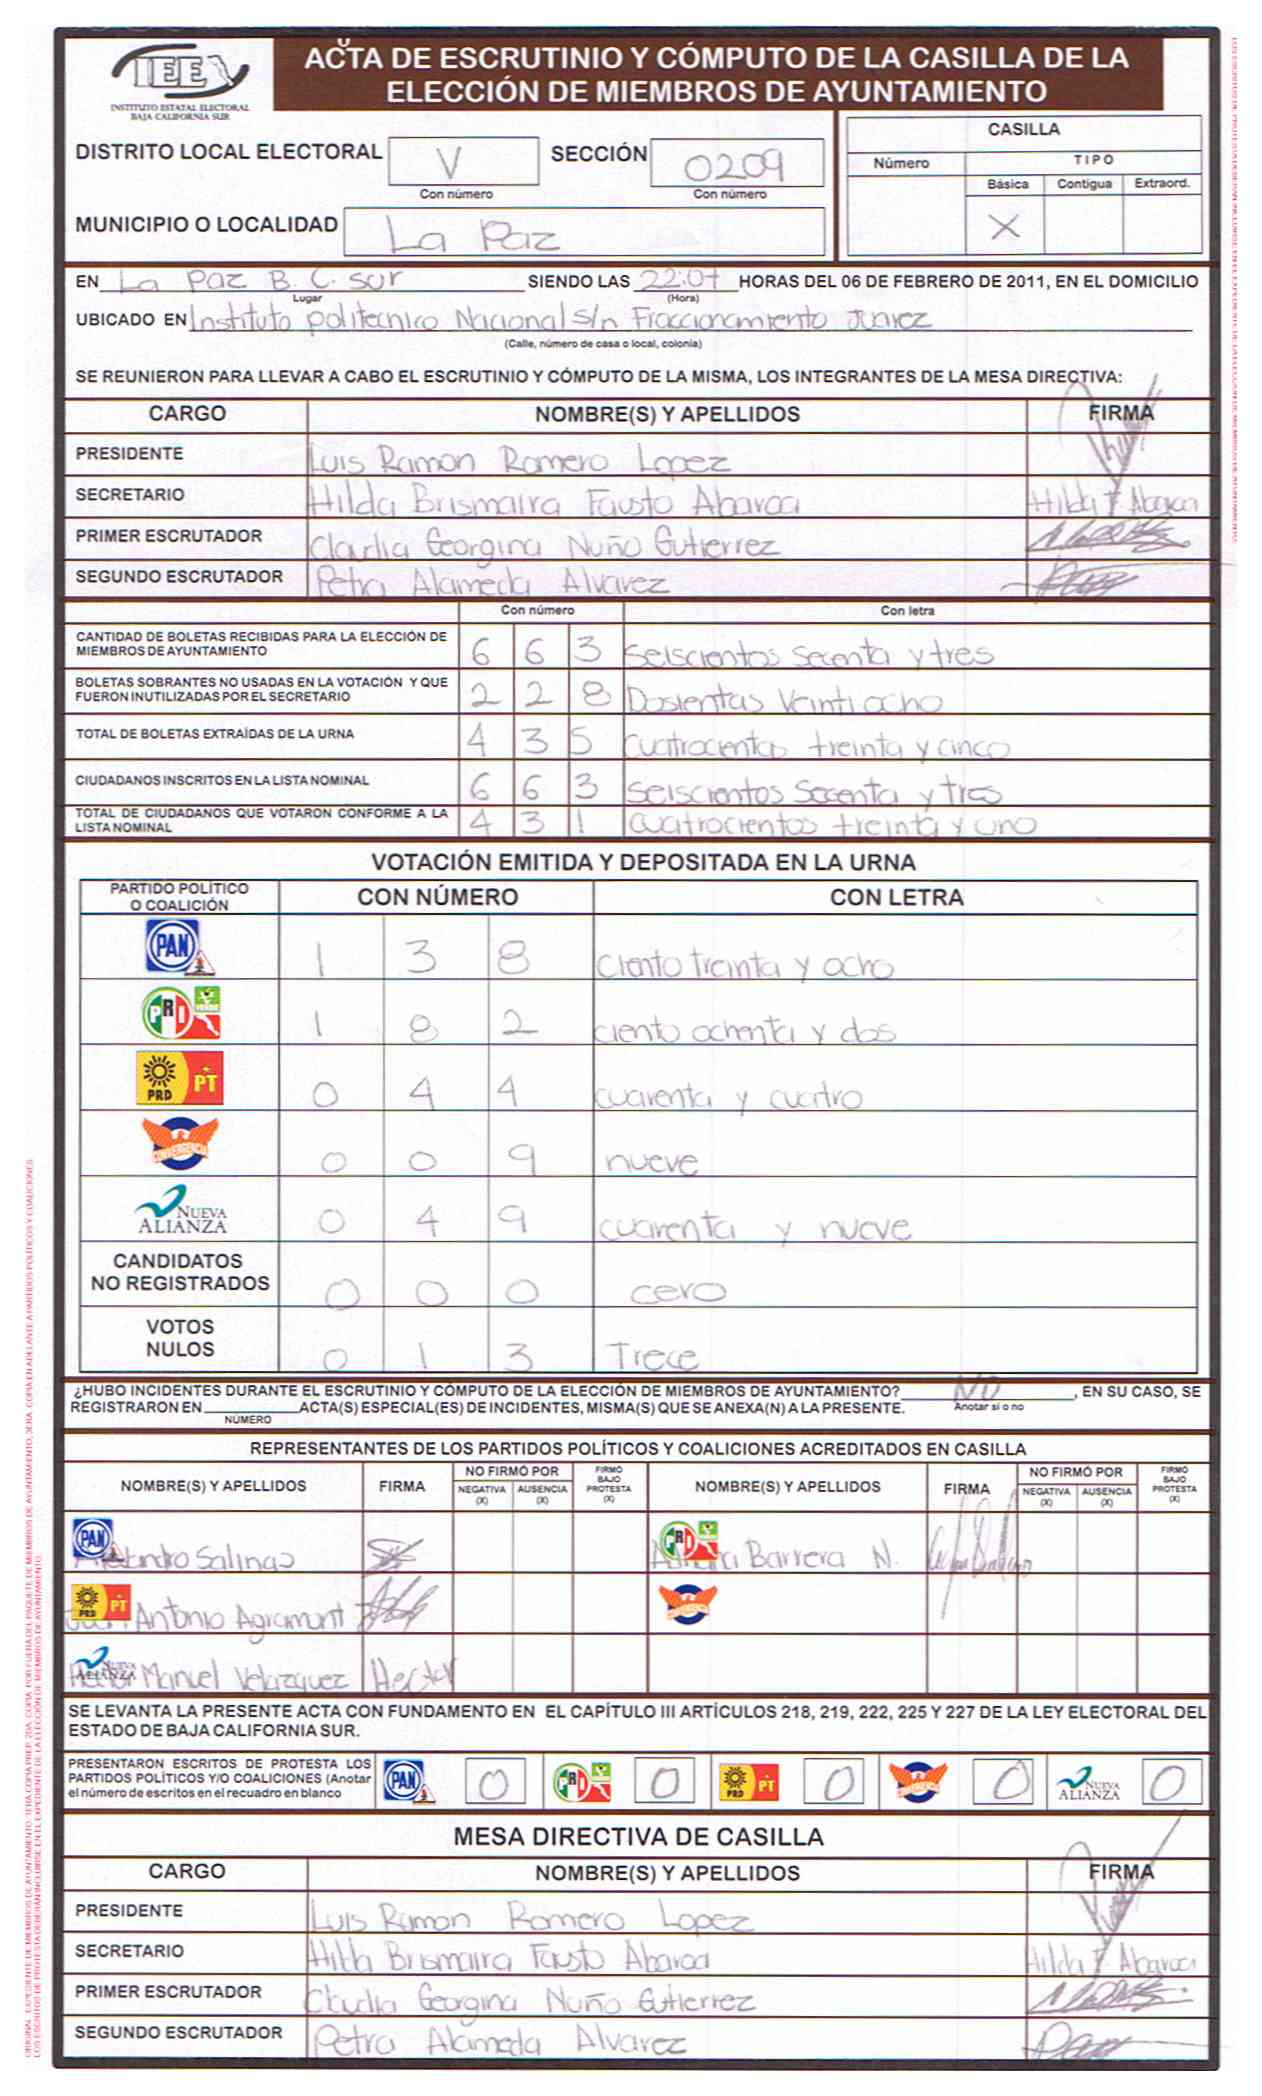 ACTA DE ESCRUTINIO Y CÓMPUTO DE LA CASILLA DE LA
ELECCIÓN DE MIEMBROS DE AYUNTAMIENTO
IEE
INSTITUTO ESTATAL ELECTORAL
BAJA CALIFORNIA SUR
DISTRITO LOCAL ELECTORAL V SECCIÓN 0209
Con número Con número
MUNICIPIO O LOCALIDAD La Paz
CASILLA
Número TIPO
Básica Contigua Extraord.
X
EN La Paz B. C. Sur SIENDO LAS 22:07 HORAS DEL 06 DE FEBRERO DE 2011, EN EL DOMICILIO
Lugar (Hora)
UBICADO EN Instituto politecnico Nacional s/n Fraccionamiento Juarez
(Calle, número de casa o local, colonia)
SE REUNIERON PARA LLEVAR A CABO EL ESCRUTINIO Y CÓMPUTO DE LA MISMA, LOS INTEGRANTES DE LA MESA DIRECTIVA:
CARGO NOMBRE(S) Y APELLIDOS FIRMA
PRESIDENTE Luis Ramon Romero Lopez
SECRETARIO Hilda Brismaira Fausto Abaroa Hilda F. Abaroa
PRIMER ESCRUTADOR Claudia Georgina Nuño Gutierrez
SEGUNDO ESCRUTADOR Petra Alameda Alvarez
Con número Con letra
CANTIDAD DE BOLETAS RECIBIDAS PARA LA ELECCIÓN DE
MIEMBROS DE AYUNTAMIENTO 6 6 3 Seiscientos Secenta y tres
BOLETAS SOBRANTES NO USADAS EN LA VOTACIÓN Y QUE
FUERON INUTILIZADAS POR EL SECRETARIO 2 2 8 Dosientas Veinti ocho
TOTAL DE BOLETAS EXTRAÍDAS DE LA URNA 4 3 5 Cuatrocientas treinta y cinco
CIUDADANOS INSCRITOS EN LA LISTA NOMINAL 6 6 3 Seiscientos Secenta y tres
TOTAL DE CIUDADANOS QUE VOTARON CONFORME A LA
LISTA NOMINAL 4 3 1 Cuatrocientos treinta y uno
VOTACIÓN EMITIDA Y DEPOSITADA EN LA URNA
PARTIDO POLÍTICO
O COALICIÓN CON NÚMERO CON LETRA
PAN 1 3 8 ciento treinta y ocho
PRI VERDE 1 8 2 ciento ochenta y dos
PRD PT 0 4 4 cuarenta y cuatro
CONVERGENCIA 0 0 9 nueve
NUEVA ALIANZA 0 4 9 cuarenta y nueve
CANDIDATOS
NO REGISTRADOS 0 0 0 cero
VOTOS
NULOS 0 1 3 Trece
¿HUBO INCIDENTES DURANTE EL ESCRUTINIO Y CÓMPUTO DE LA ELECCIÓN DE MIEMBROS DE AYUNTAMIENTO? NO, EN SU CASO, SE
REGISTRARON EN ACTA(S) ESPECIAL(ES) DE INCIDENTES, MISMA(S) QUE SE ANEXA(N) A LA PRESENTE. Anotar si o no
NÚMERO
REPRESENTANTES DE LOS PARTIDOS POLÍTICOS Y COALICIONES ACREDITADOS EN CASILLA
NOMBRE(S) Y APELLIDOS FIRMA NO FIRMÓ POR NEGATIVA (X) AUSENCIA (X) FIRMÓ BAJO PROTESTA (X) NOMBRE(S) Y APELLIDOS FIRMA NO FIRMÓ POR NEGATIVA (X) AUSENCIA (X) FIRMÓ BAJO PROTESTA (X)
PAN Alejandro Salinas PRI Barrera N.
PRD PT Juan Antonio Agramont CONVERGENCIA
NUEVA ALIANZA Hector Manuel Velazquez Hector
SE LEVANTA LA PRESENTE ACTA CON FUNDAMENTO EN EL CAPÍTULO III ARTÍCULOS 218, 219, 222, 225 Y 227 DE LA LEY ELECTORAL DEL
ESTADO DE BAJA CALIFORNIA SUR.
PRESENTARON ESCRITOS DE PROTESTA LOS
PARTIDOS POLÍTICOS Y/O COALICIONES (Anotar
el número de escritos en el recuadro en blanco
PAN 0 PRI 0 PRD PT 0 CONVERGENCIA 0 NUEVA ALIANZA 0
MESA DIRECTIVA DE CASILLA
CARGO NOMBRE(S) Y APELLIDOS FIRMA
PRESIDENTE Luis Ramon Romero Lopez
SECRETARIO Hilda Brismaira Fausto Abaroa Hilda F. Abaroa
PRIMER ESCRUTADOR Claudia Georgina Nuño Gutierrez
SEGUNDO ESCRUTADOR Petra Alameda Alvarez